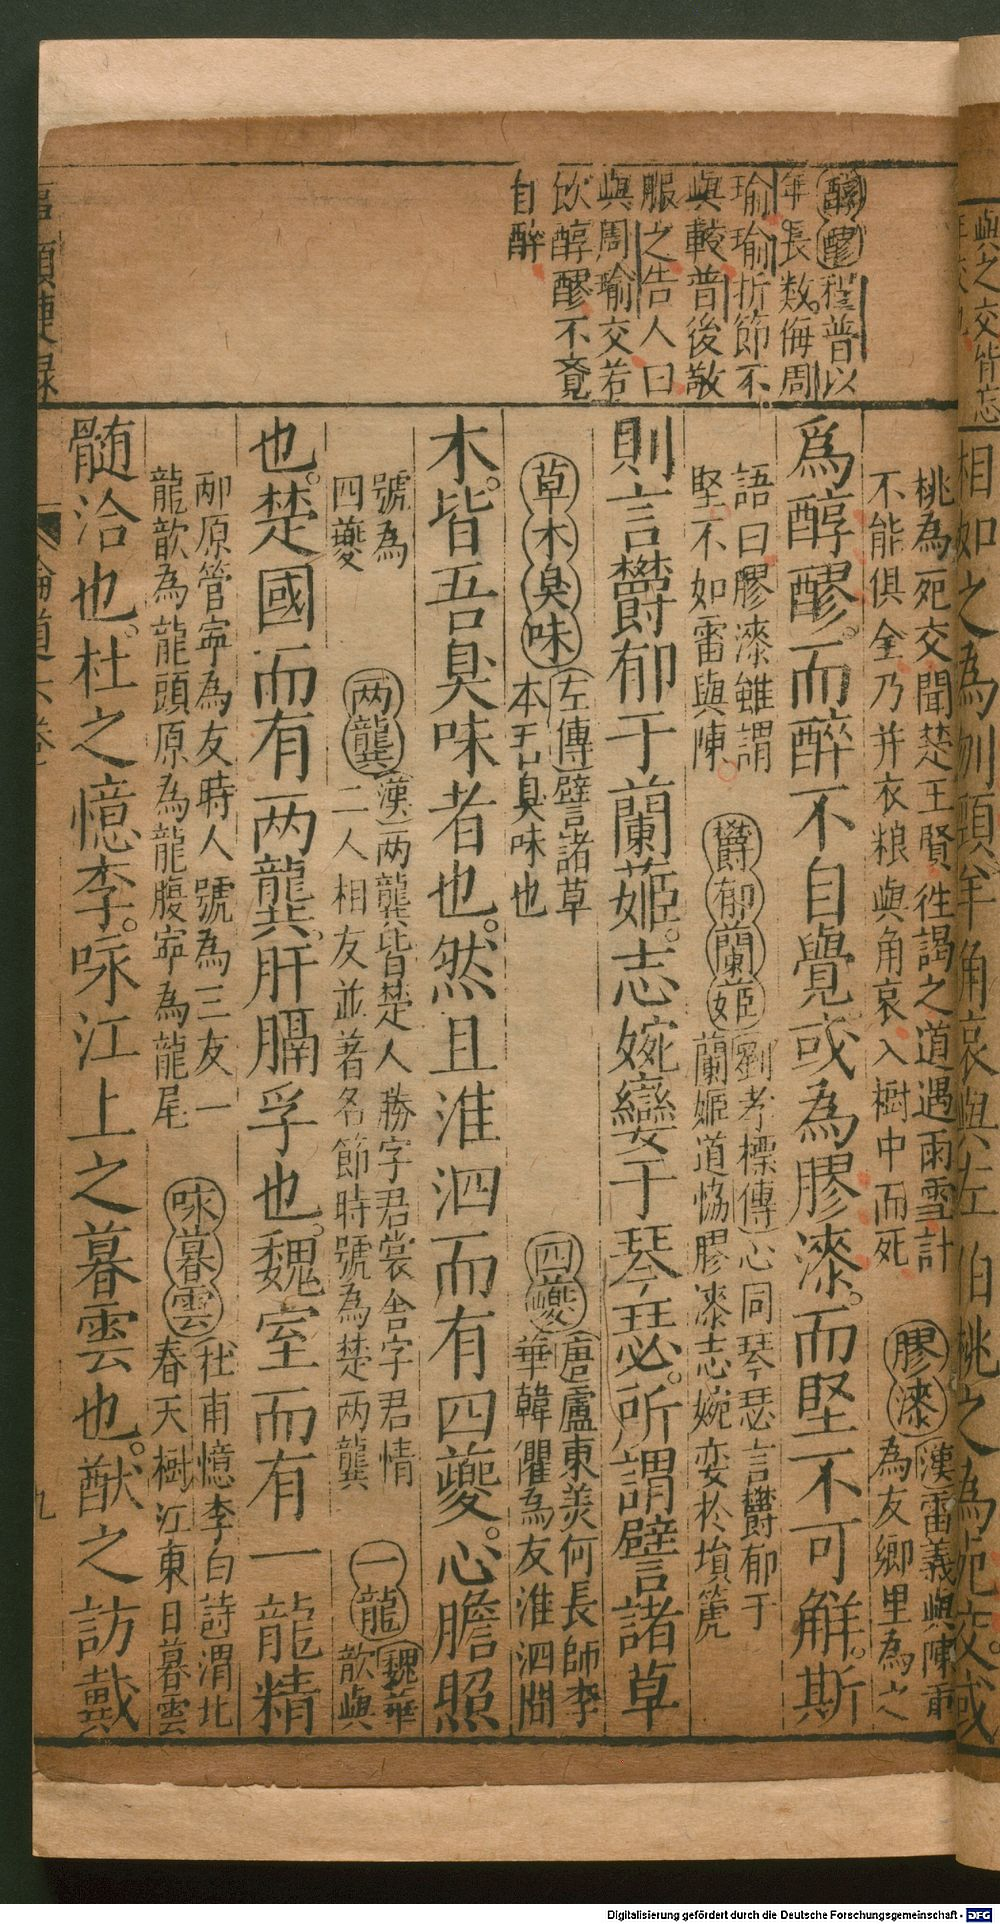 與之交皆忘
相如之為刎頸羊角哀與左伯桃之為死交或
醇醪程普以
年長数侮周
瑜瑜折節不
與較普後敬
服之告人曰
與周瑜交若
飲醇醪不覔
自醉
桃為死交聞楚王賢徃謁之道遇雨雪計
不能俱全乃并衣粮與角哀入樹中而死
膠漆漢雷義與陳重
為友鄉里為之
爲醇醪。而醉不自覺或為膠漆。而堅不可解。斯
語曰膠漆雖謂
堅不如雷與陳
欝郁蘭姬劉孝標傳心同琴瑟言欝郁于
蘭姬道恊膠漆志婉孌於埙篪
則言欝郁于蘭姬。志婉孌于琴瑟。所謂譬諸草
草木臭味左傳譬諸草
本吾臭味也
四夔唐盧東美何長師李
華韓衢為友淮泗間
木。皆吾臭味者也。然且淮泗而有四夔。心膽照
號為
四夔
两龔漢两龔皆楚人勝字君裳舍字君情
二人相友並著名節時號為楚两龔
一龍魏華
歆與
也。楚國而有两龔。肝膈孚也。魏室而有一龍精
邴原管寕為友時人號為三友一
龍歆為龍頭原為龍腹寕為龍尾
咏暮雲杜甫憶李白詩渭北
春天樹江東日暮雲
髄洽也。杜之憶李。咏江上之暮雲也。猷之訪戴
九
Digitalisierung gefördert durch die Deutsche Forschungsgemeinschaft - DFG